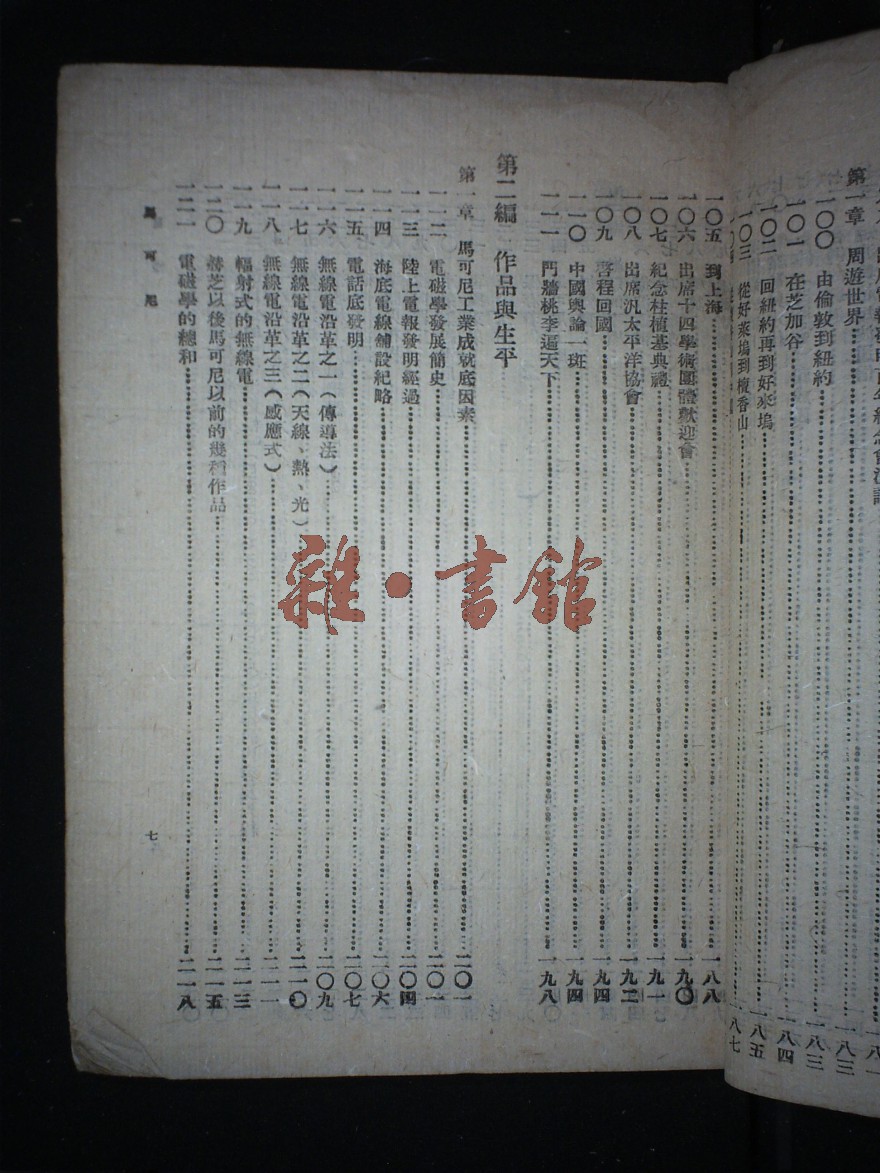 第二章 周遊世界……一八三
一〇〇 由倫敦到紐約……一八三
一〇一 在芝加谷……一八四
一〇二 回紐約再到好來塢……一八五
一〇三 從好萊塢到檀香山……一八七
一〇五 到上海……一八八
一〇六 出席十四學術團體歡迎會……一九〇
一〇七 紀念柱植基典禮……一九一
一〇八 出席汎太平洋協會……一九二
一〇九 啓程回國……一九四
一一〇 中國輿論一斑……一九四
一一一 門牆桃李遍天下……一九八
第二編 作品與生平
第一章 馬可尼工業成就底因素……二〇一
一一二 電磁學發展簡史……二〇一
一一三 陸上電報發明經過……二〇四
一一四 海底電線舖設紀略……二〇六
一一五 電話底發明……二〇七
一一六 無線電沿革之一(傳導法)……二〇九
一一七 無線電沿革之二(天線、熱、光)……二一〇
一一八 無線電沿革之三(感應式)……二一一
一一九 輻射式的無線電……二一三
一二〇 赫芝以後馬可尼以前的幾種作品……二一五
一二一 電磁學的總和……二一八
馬可尼
七
雜·書館